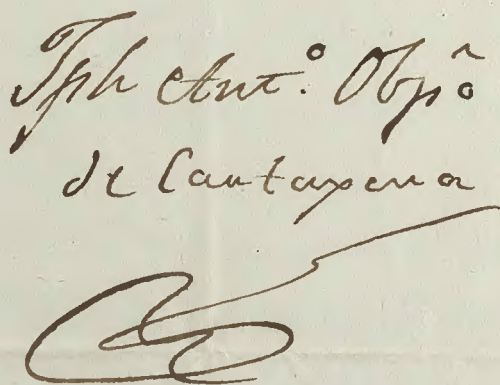 Jph Ant.º Obpõ
de Cartaxena